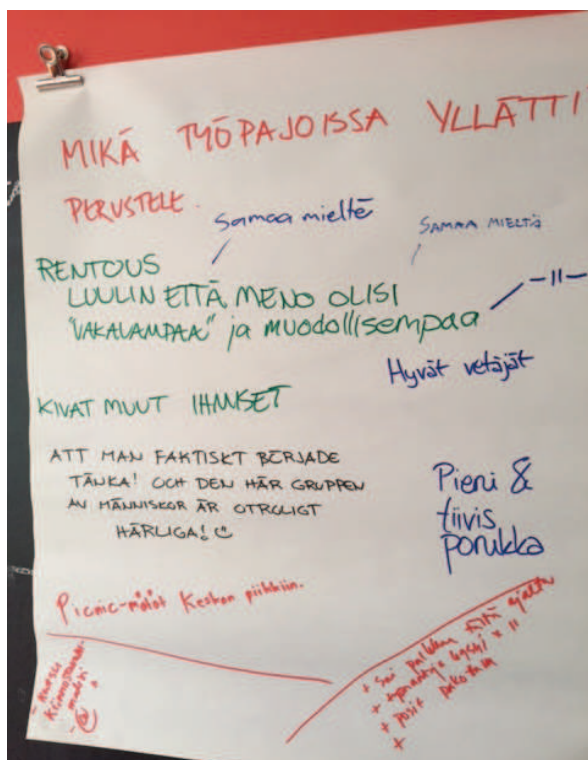 MIKÄ TYÖPAJOISSA YLLÄTTI
PERUSTELE.
samaa mieltä
SAMAA MIELTÄ
RENTOUS
LUULIN ETTÄ MENO OLISI
"VAKALAMPAA" ja muodollisempaa
-11-
Hyvät vetäjät
KIVAT MUUT IHMISET
ATT MAN FAKTISKT BÖRJADE
TÄNKA! OCH DEN HÄR GRUPPEN
AV MÄNNISKOR ÄR OTROLIGT
HÄRLIGA! ☺
Pieni &
tiivis
porukka
Picnic-mölöt Keskon piikkiin.
+ Sai palkkaa tältä ajalta
+ työnantaja kysyi x 11
+
+